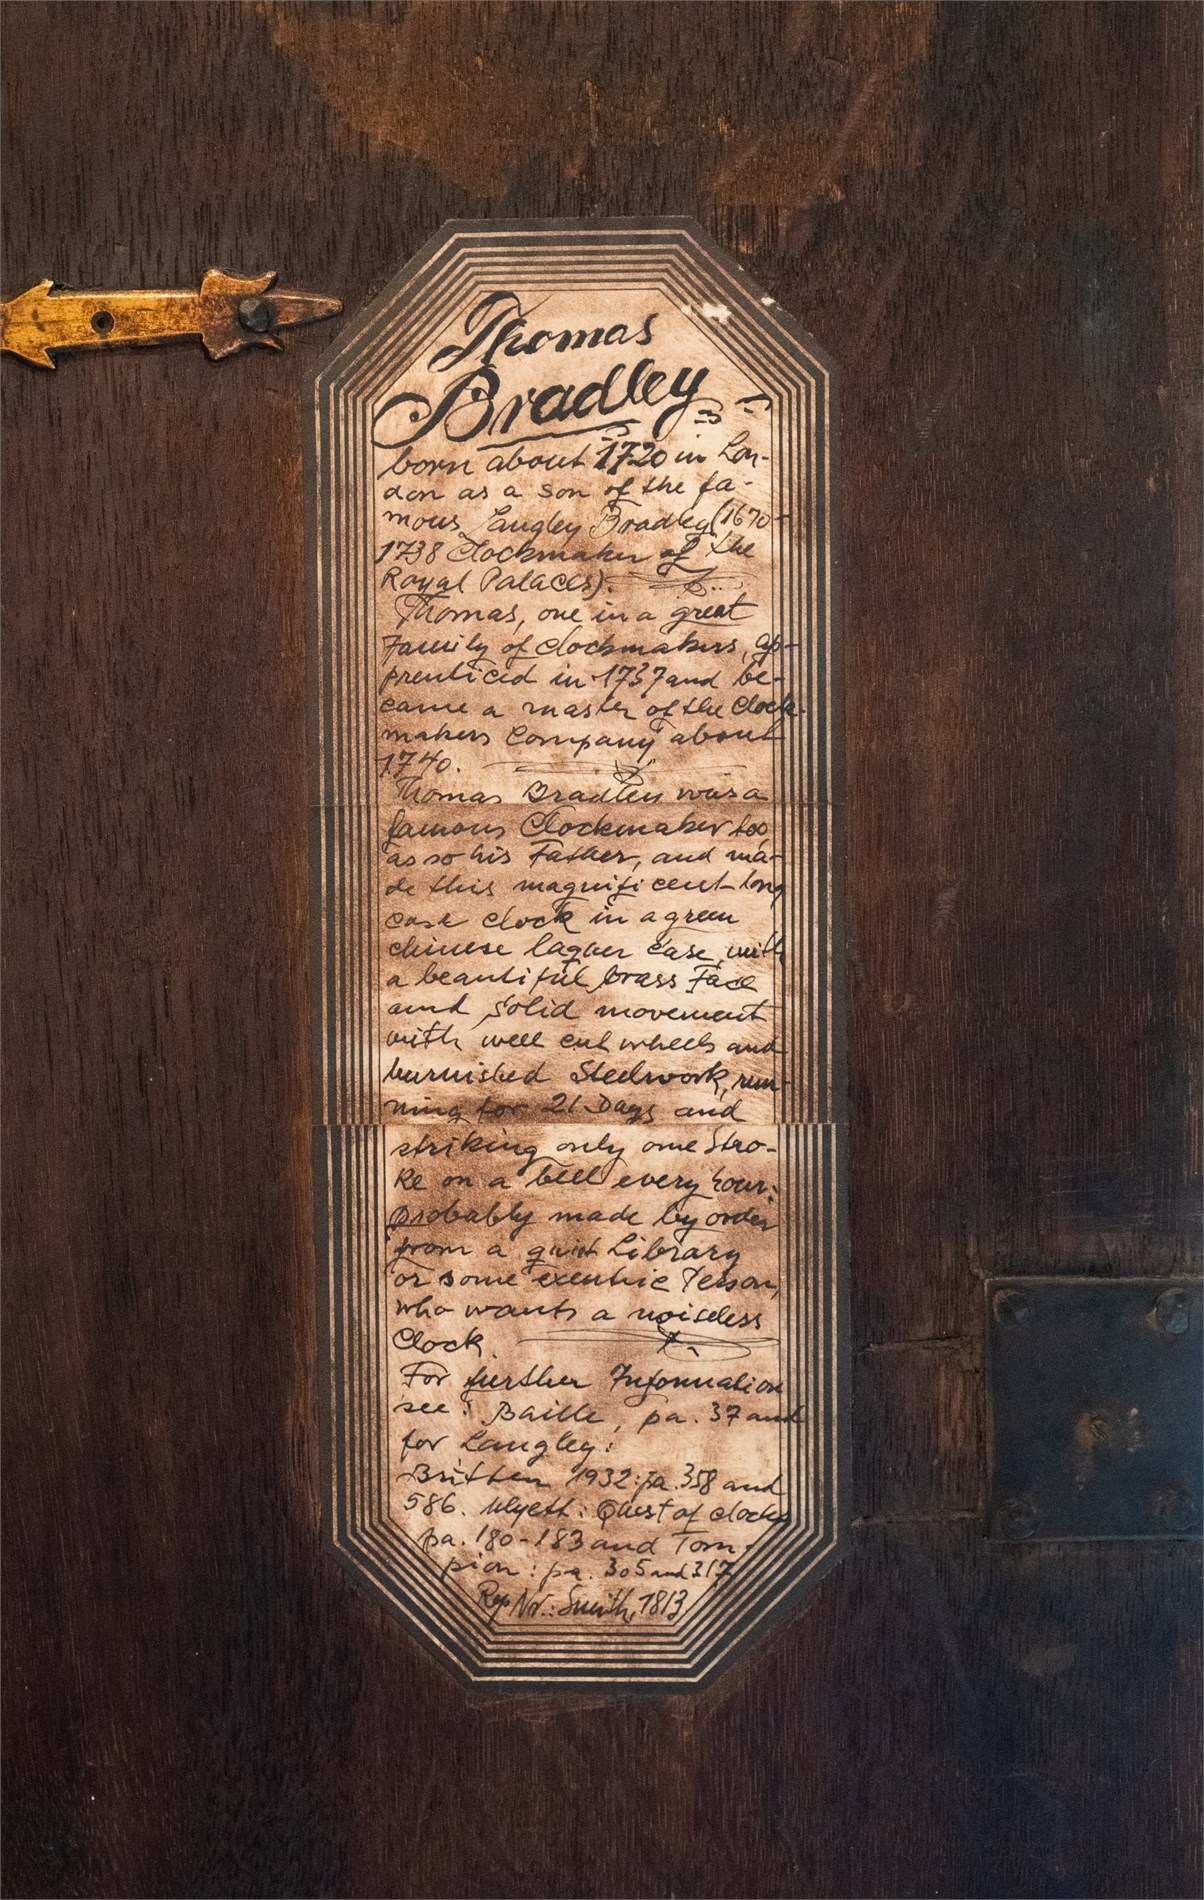 Thomas
Bradley
born about 1720 in Lon-
don as a son of the fa-
mous Langley Bradley (1670-
1738 Clockmaker of the
Royal Palaces).
Thomas, one in a great
Family of Clockmakers, ap-
prenticed in 1737 and be-
came a master of the Clock-
makers Company about
1740.
Thomas Bradley was a
famous Clockmaker too
as so his Father, and ma-
de this magnificent long
case clock in a green
chinese laquer case, with
a beautiful brass Face
and solid movement
with well cut wheels and
burnished Steelwork, run-
ning for 21 Days and
striking only one Stro-
ke on a bell every hour:
probably made by order
from a quiet Library
or some exentric Person,
who wants a noiseless
Clock.
For further Information
see: Baille, pa. 37 and
for Langley:
Britten 1932: pa. 358 and
586. : Quest of clocks
pa. 180-183 and Tom-
pion: pa. 305 and 317
Rep Nr.: Smith, 1813